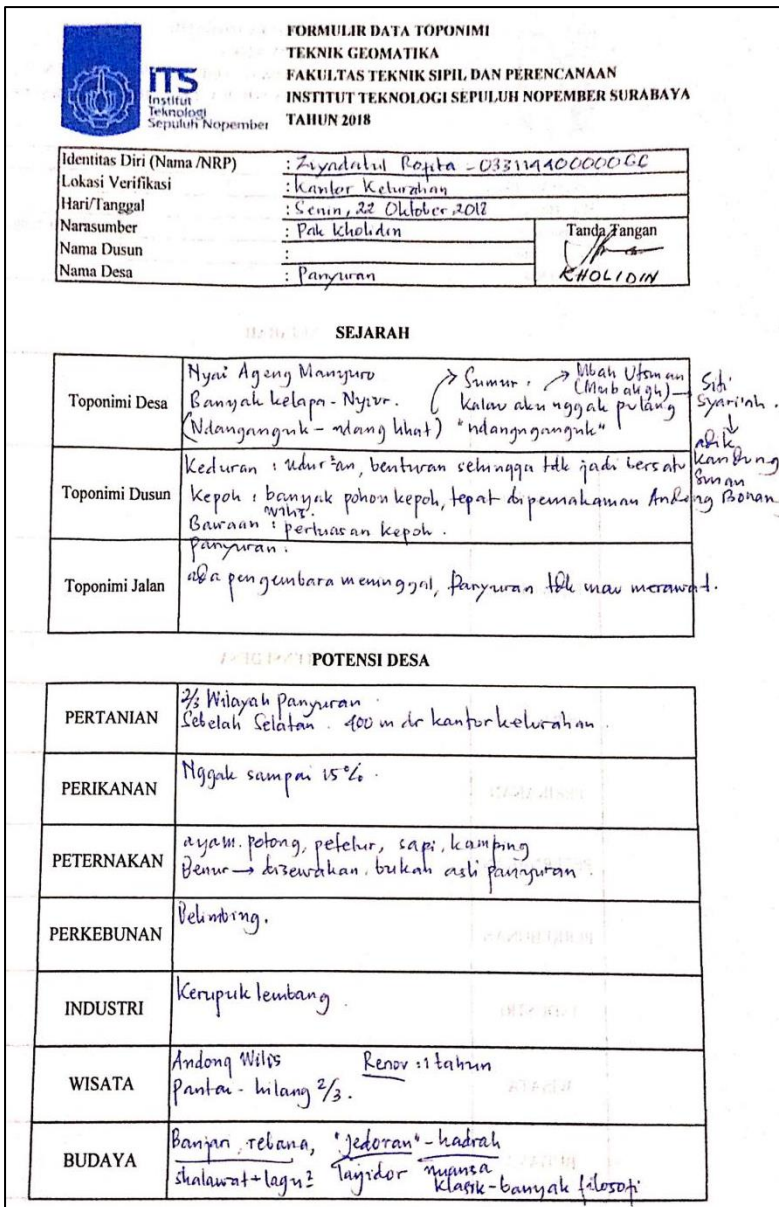 FORMULIR DATA TOPONIMI
TEKNIK GEOMATIKA
FAKULTAS TEKNIK SIPIL DAN PERENCANAAN
INSTITUT TEKNOLOGI SEPULUH NOPEMBER SURABAYA
TAHUN 2018
ITS
Institut
Teknologi
Sepuluh Nopember
Identitas Diri (Nama /NRP) : Ziyadatul Rofita -
Lokasi Verifikasi : Kantor Kelurahan
Hari/Tanggal : Senin, 22 Oktober 2018
Narasumber : Pak Kholidin
Tanda Tangan
Nama Dusun :
Nama Desa : Panyuran
KHOLIDIN
SEJARAH
Toponimi Desa
Nyai Ageng Manyuro
Banyak kelapa - Nyiur.
(Ndanganguk - ndang lihat)
→ Sumur.
Kalau aku nggak pulang
"ndangnganguk"
→ Mbah Utsman
(Mubaligh) →
Siti
Syari'ah.
↓
adik
kandung
Sunan
Bonang
Toponimi Dusun
Keduran : udur²an, benturan sehingga tdk jadi bersatu
Kepoh : banyak pohon kepoh, tepat di pemakaman Andong
Wilis.
Bawaan : perluasan kepoh.
Toponimi Jalan
panyuran.
ada pengembara meninggal, Panyuran tdk mau merawat.
POTENSI DESA
PERTANIAN
2/3 Wilayah panyuran.
Sebelah Selatan. 400 m dr kantor kelurahan.
PERIKANAN
Nggak sampai 15%.
PETERNAKAN
ayam. potong, petelur, sapi, kambing
Benur → disewakan. bukan asli panyuran.
PERKEBUNAN
Belimbing.
INDUSTRI
Kerupuk lembang.
WISATA
Andong Wilis Renov : 1 tahun
Pantai - hilang 2/3.
BUDAYA
Banjari, rebana, "Jedoran" - hadrah
shalawat + lagu² nuansa
klasik - banyak filosofi